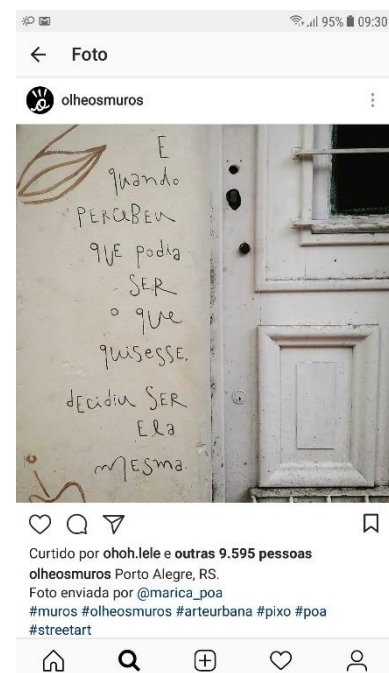 95% 09:30
Foto
olheosmuros
E
quando
PERCEBEU
QUE podia
SER
o que
quisesse.
dEcidiu SER
Ela
mESma.
Curtido por ohoh.lele e outras 9.595 pessoas
olheosmuros Porto Alegre, RS.
Foto enviada por @marica_poa
#muros #olheosmuros #arteurbana #pixo #poa
#streetart